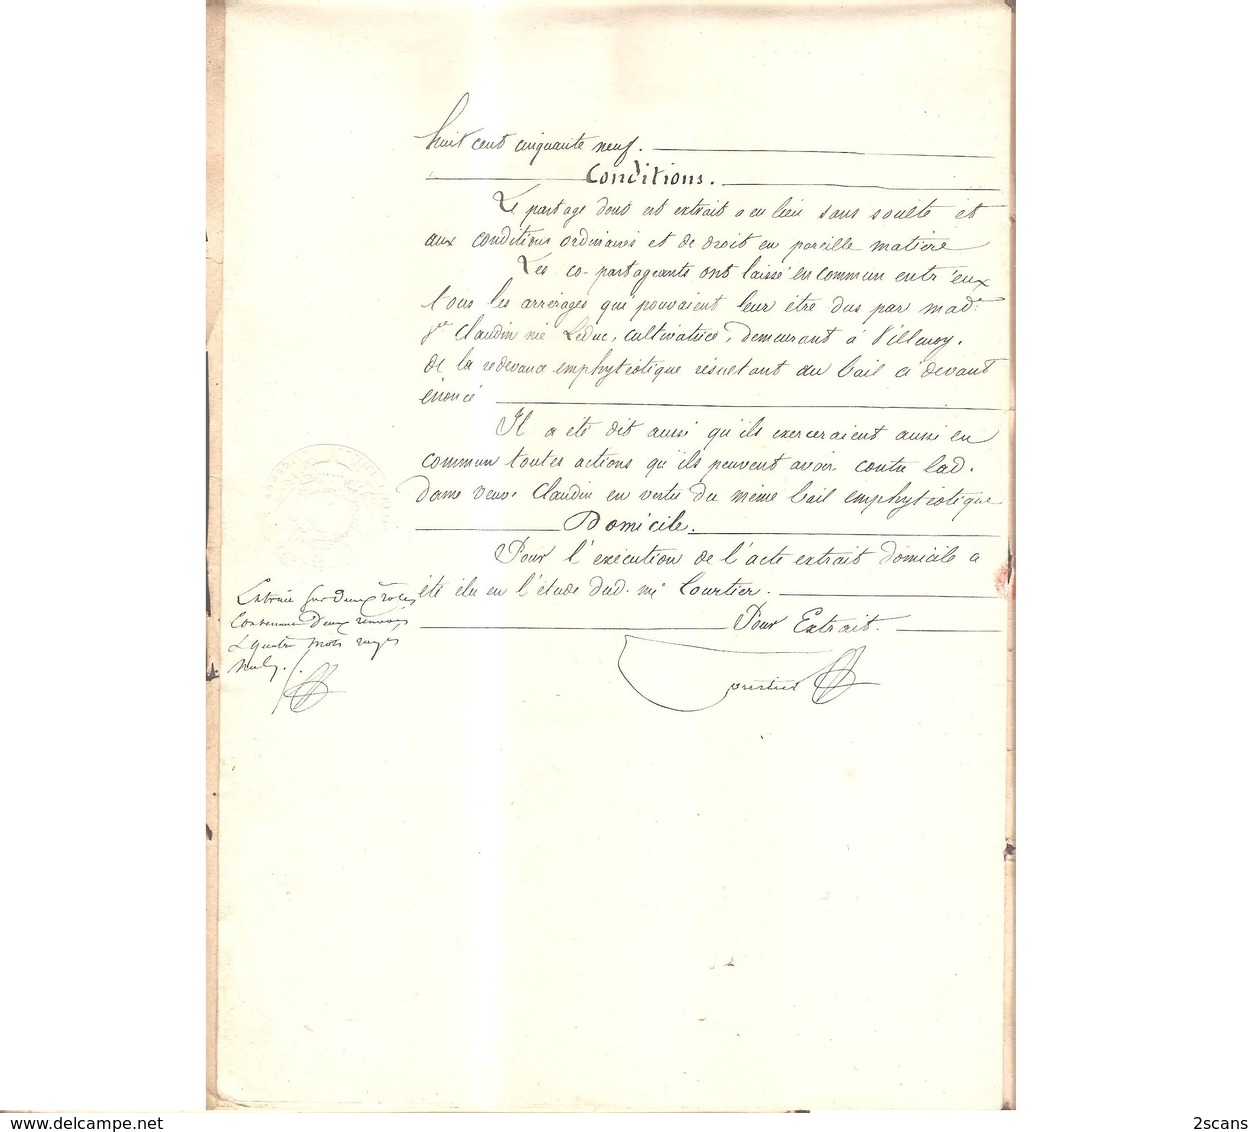 huit cent cinquante neuf.
Conditions.
Le partage dont est extrait a eu lieu sans soulte et
aux conditions ordinaires et de droit en pareille matière
Les co-partageants ont laissé en commun entr'eux
tous les arrérages qui pouvaient leur être dus par mad.e
Ve Claudin née Leduc, cultivatrice, demeurant à Villeroy.
de la redevance emphytéotique résultant du bail ci devant
énoncé
Il a été dit aussi qu'ils exerceraient aussi en
commun toutes actions qu'ils peuvent avoir contre lad.
Dame veuve Claudin en vertu du même bail emphytéotique
Domicile.
Pour l'exécution de l'acte extrait domicile a
été élu en l'étude dud. me Courtier.
Pour Extrait.
Courtier
Extrait sur deux rôles
Contenant deux renvois
& quatre mots rayés
nuls.
www.delcampe.net
2scans